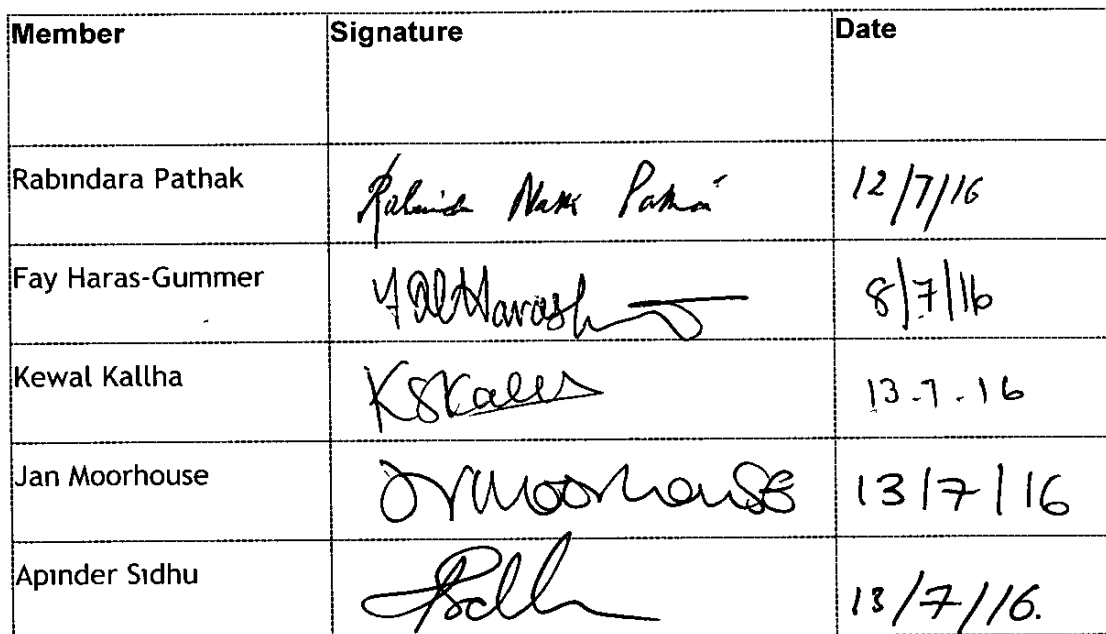 Member Signature Date
Rabındara Pathak 12/7/16
Fay Haras-Gummer 8/7/16
Kewal Kallha 13.7.16
Jan Moorhouse Moorhouse 13/7/16
Apınder Sıdhu 13/7/16.